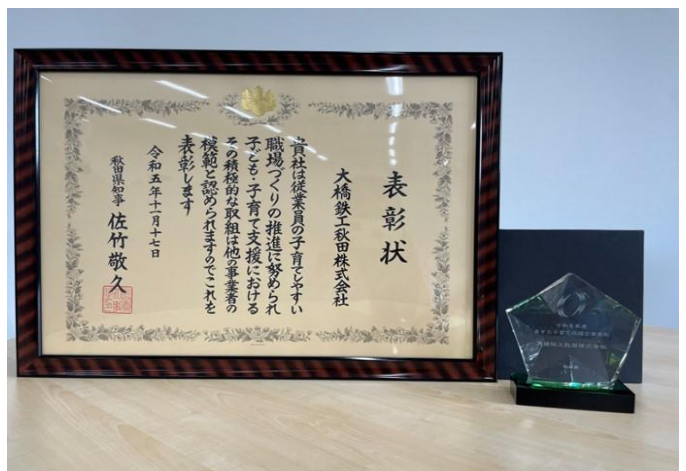 表彰状
大橋鉄工秋田株式会社
貴社は従業員の子育てしやすい
職場づくりの推進に努められ
子ども・子育て支援における
その積極的な取組は他の事業者の
模範と認められますのでこれを
表彰します
令和五年十一月十七日
秋田県知事 佐竹敬久